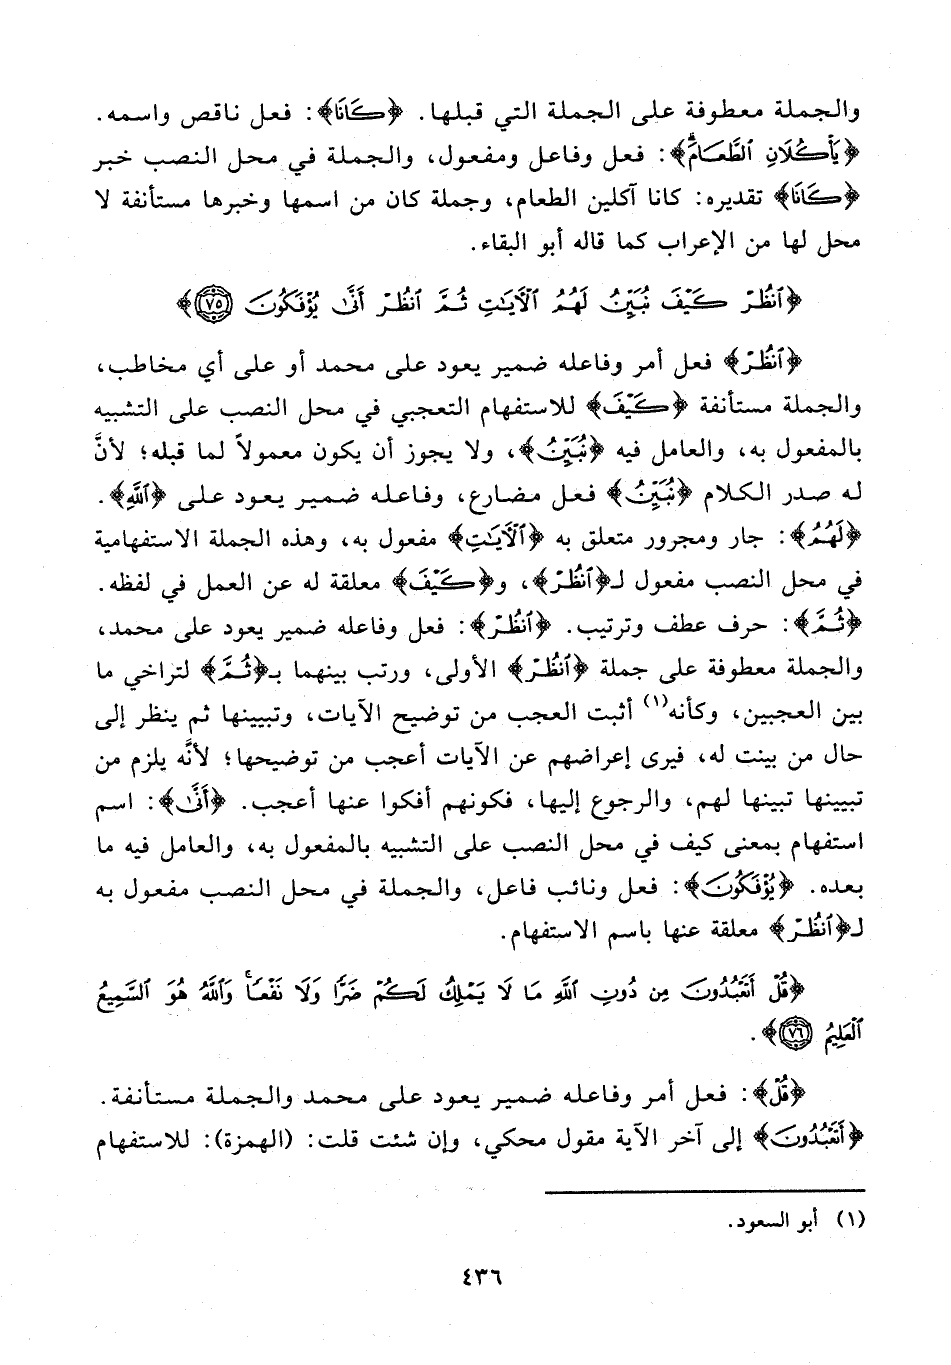 والجملة معطوفة على الجملة التي قبلها. ﴿كَانَا﴾: فعل ناقص واسمه.
﴿يَأْكُلَانِ ٱلطَّعَامَ﴾: فعل وفاعل ومفعول، والجملة في محل النصب خبر
﴿كَانَا﴾ تقديره: كانا آكلين الطعام، وجملة كان من اسمها وخبرها مستأنفة لا
محل لها من الإعراب كما قاله أبو البقاء.
﴿ٱنظُرْ كَيْفَ نُبَيِّنُ لَهُمُ ٱلْآيَٰتِ ثُمَّ ٱنظُرْ أَنَّىٰ يُؤْفَكُونَ ٧٥﴾
﴿ٱنظُرْ﴾ فعل أمر وفاعله ضمير يعود على محمد أو على أي مخاطب،
والجملة مستأنفة ﴿كَيْفَ﴾ للاستفهام التعجبي في محل النصب على التشبيه
بالمفعول به، والعامل فيه ﴿نُبَيِّنُ﴾، ولا يجوز أن يكون معمولاً لما قبله؛ لأنَّ
له صدر الكلام ﴿نُبَيِّنُ﴾ فعل مضارع، وفاعله ضمير يعود على ﴿ٱللَّهِ﴾.
﴿لَهُمُ﴾: جار ومجرور متعلق به ﴿ٱلْآيَٰتِ﴾ مفعول به، وهذه الجملة الاستفهامية
في محل النصب مفعول لـ﴿ٱنظُرْ﴾، و﴿كَيْفَ﴾ معلقة له عن العمل في لفظه.
﴿ثُمَّ﴾: حرف عطف وترتيب. ﴿ٱنظُرْ﴾: فعل وفاعله ضمير يعود على محمد،
والجملة معطوفة على جملة ﴿ٱنظُرْ﴾ الأولى، ورتب بينهما بـ﴿ثُمَّ﴾ لتراخي ما
بين العجبين، وكأنه(١) أثبت العجب من توضيح الآيات، وتبيينها ثم ينظر إلى
حال من بينت له، فيرى إعراضهم عن الآيات أعجب من توضيحها؛ لأنَّه يلزم من
تبيينها تبينها لهم، والرجوع إليها، فكونهم أفكوا عنها أعجب. ﴿أَنَّىٰ﴾: اسم
استفهام بمعنى كيف في محل النصب على التشبيه بالمفعول به، والعامل فيه ما
بعده. ﴿يُؤْفَكُونَ﴾: فعل ونائب فاعل، والجملة في محل النصب مفعول به
لـ﴿ٱنظُرْ﴾ معلقة عنها باسم الاستفهام.
﴿قُلْ أَتَعْبُدُونَ مِن دُونِ ٱللَّهِ مَا لَا يَمْلِكُ لَكُمْ ضَرًّا وَلَا نَفْعًا ۚ وَٱللَّهُ هُوَ ٱلسَّمِيعُ
ٱلْعَلِيمُ ٧٦﴾.
﴿قُلْ﴾: فعل أمر وفاعله ضمير يعود على محمد والجملة مستأنفة.
﴿أَتَعْبُدُونَ﴾ إلى آخر الآية مقول محكي، وإن شئت قلت: (الهمزة): للاستفهام
(١) أبو السعود.
٤٣٦